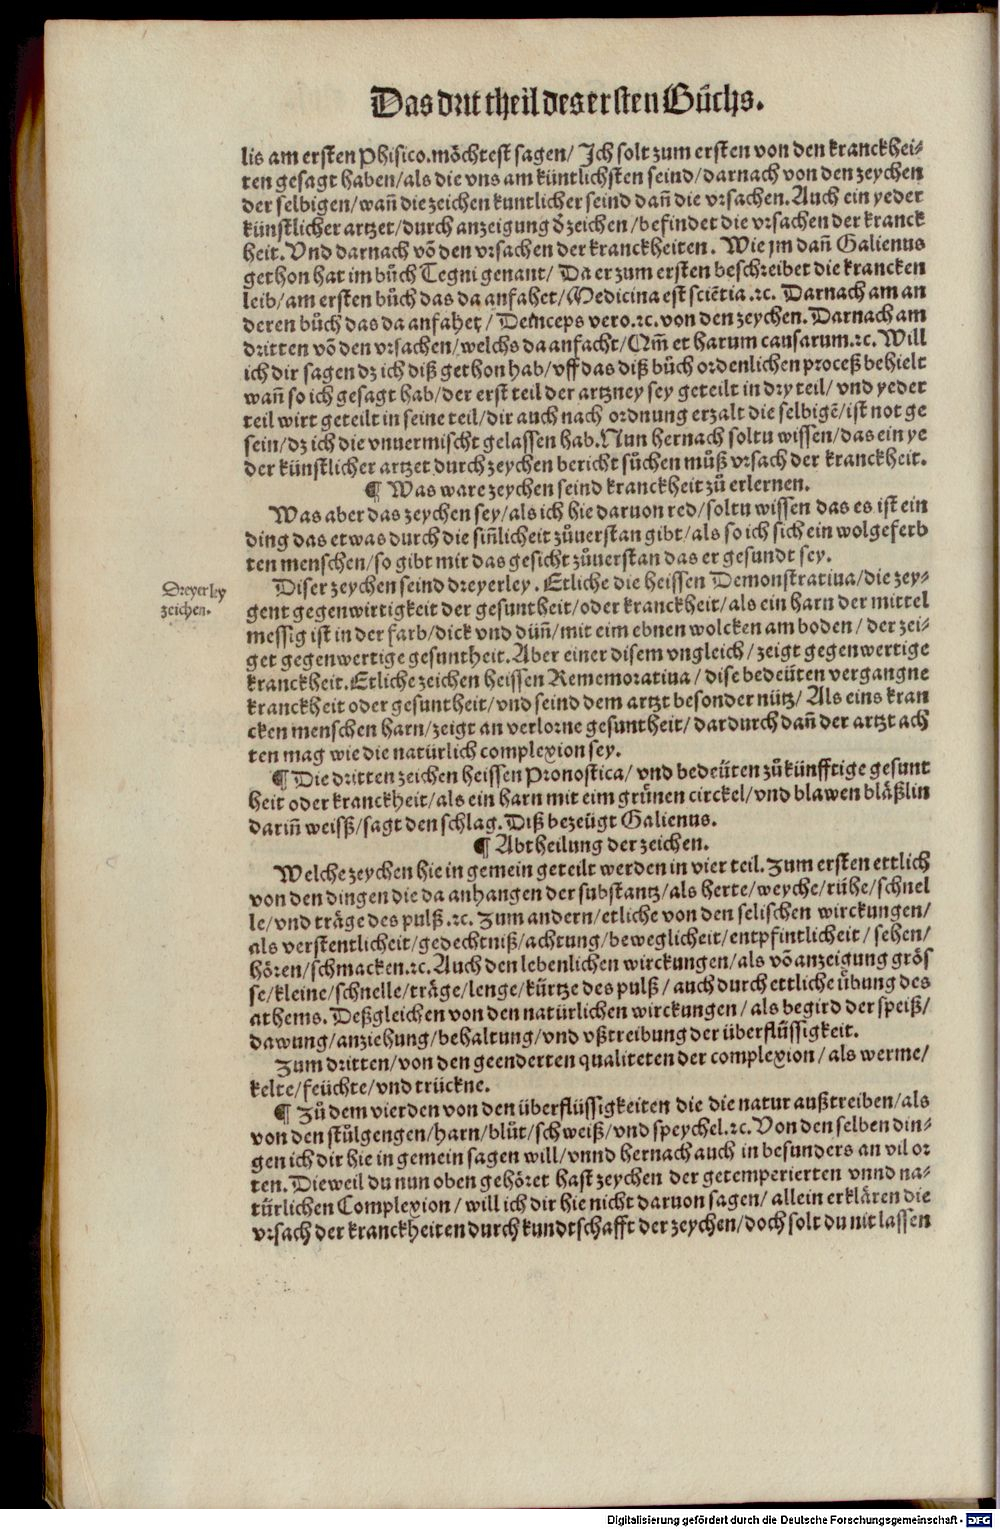 Das drit theil des ersten Bůchs.
lis am ersten Phisico. möchtest sagen/ Ich solt zum ersten von den kranckhei-
ten gesagt haben/als die vns am küntlichsten seind/darnach von den zeychen
der selbigen/wañ die zeichen kuntlicher seind dañ die vrsachen. Auch ein yeder
künstlicher artzet/durch anzeigung d̄ zeichen/befindet die vrsachen der kranck
heit. Vnd darnach võ den vrsachen der kranckheiten. Wie jm dañ Galienus
gethon hat im bůch Tegni genant/ Da er zum ersten beschreibet die krancken
leib/am ersten bůch das da anfahet/Medicina est sciẽtia .ꝛc. Darnach am an
deren bůch das da anfahet/ Deinceps vero.ꝛc. von den zeychen. Darnach am
dritten võ den vrsachen/welchs da anfacht/Qm̃ et harum causarum.ꝛc. Will
ich dir sagen dz ich diß gethon hab/vff das diß bůch ordenlichen proceß behielt
wañ so ich gesagt hab/der erst teil der artzney sey geteilt in dry teil/ vnd yeder
teil wirt geteilt in seine teil/dir auch nach ordnung erzalt die selbigẽ/ist not ge
sein/dz ich die vnuermischt gelassen hab. Nun hernach soltu wissen/das ein ye
der künstlicher artzet durch zeychen bericht sůchen můß vrsach der kranckheit.
¶ Was ware zeychen seind kranckheit zů erlernen.
Was aber das zeychen sey/als ich hie daruon red/soltu wissen das es ist ein
ding das etwas durch die siñlicheit zůuerstan gibt/als so ich sich ein wolgeferb
ten menschen/so gibt mir das gesicht zůuerstan das er gesundt sey.
Dreyerley
zeichen.
Diser zeychen seind dreyerley. Etliche die heissen Demonstratiua/die zey-
gent gegenwirtigkeit der gesuntheit/oder kranckheit/als ein harn der mittel
messig ist in der farb/dick vnd düñ/mit eim ebnen wolcken am boden/ der zei-
get gegenwertige gesuntheit. Aber einer disem vngleich/ zeigt gegenwertige
kranckheit. Etliche zeichen heissen Rememoratiua/ dise bedeüten vergangne
kranckheit oder gesuntheit/vnd seind dem artzt besonder nütz/ Als eins kran
cken menschen harn/zeigt an verlorne gesuntheit/ dardurch dañ der artzt ach
ten mag wie die natürlich complexion sey.
¶ Die dritten zeichen heissen Pronostica/ vnd bedeüten zůkünfftige gesunt
heit oder kranckheit/als ein harn mit eim grünen circkel/vnd blawen bläßlin
dariñ weisß/sagt den schlag. Diß bezeügt Galienus.
¶ Abtheilung der zeichen.
Welche zeychen hie in gemein geteilt werden in vier teil. Zum ersten ettlich
von den dingen die da anhangen der substantz/als herte/weyche/rühe/schnel
le/vnd träge des pulß.ꝛc. Zum andern/etliche von den selischen wirckungen/
als verstentlicheit/gedechtniß/achtung/beweglicheit/entpfintlicheit/ sehen/
hören/schmacken.ꝛc. Auch den lebenlichen wirckungen/als võ anzeigung grös
se/kleine/schnelle/träge/lenge/kürtze des pulß/ auch durch ettliche übung des
athems. Deßgleichen von den natürlichen wirckungen/ als begird der speiß/
dawung/anziehung/behaltung/vnd vßtreibung der überflüssigkeit.
Zum dritten/von den geenderten qualiteten der complexion/als werme/
kelte/feüchte/vnd trückne.
¶ Zů dem vierden von den überflüssigkeiten die die natur außtreiben/als
von den stůlgengen/harn/blůt/schweiß/vnd speychel.ꝛc. Von den selben din-
gen ich dir hie in gemein sagen will/vnnd hernach auch in besunders an vil or
ten. Dieweil du nun oben gehöret hast zeychen der getemperierten vnnd na-
türlichen Complexion/ will ich dir hie nicht daruon sagen/ allein erklären die
vrsach der kranckheiten durch kundtschafft der zeychen/doch solt du nit lassen
Digitalisierung gefördert durch die Deutsche Forschungsgemeinschaft - DFG